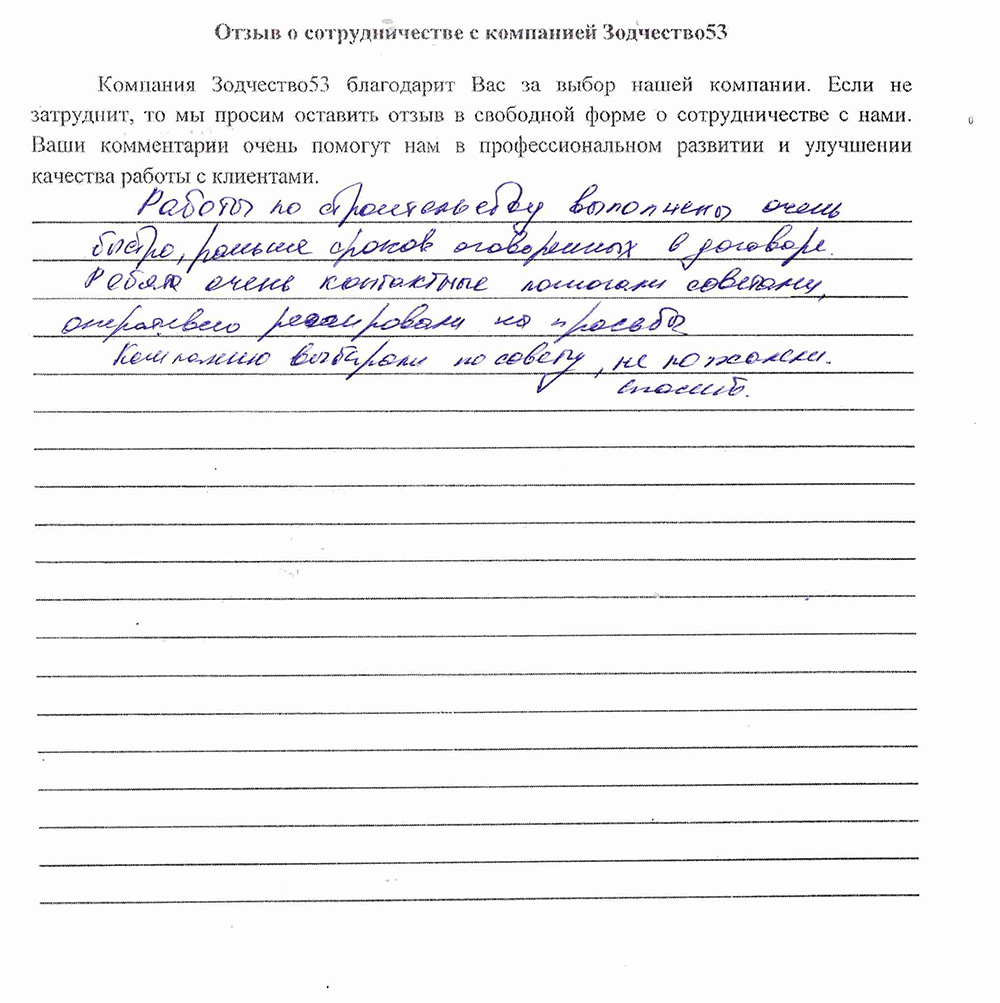 Отзыв о сотрудничестве с компанией Зодчество53
Компания Зодчество53 благодарит Вас за выбор нашей компании. Если не
затруднит, то мы просим оставить отзыв в свободной форме о сотрудничестве с нами.
Ваши комментарии очень помогут нам в профессиональном развитии и улучшении
качества работы с клиентами.
Работы по строительству выполнены очень
быстро, раньше сроков оговоренных в договоре.
Ребята очень контактные помогали советами,
оперативно реагировали на просьбы
Компанию выбирали по совету, не пожалели.
спасибо.